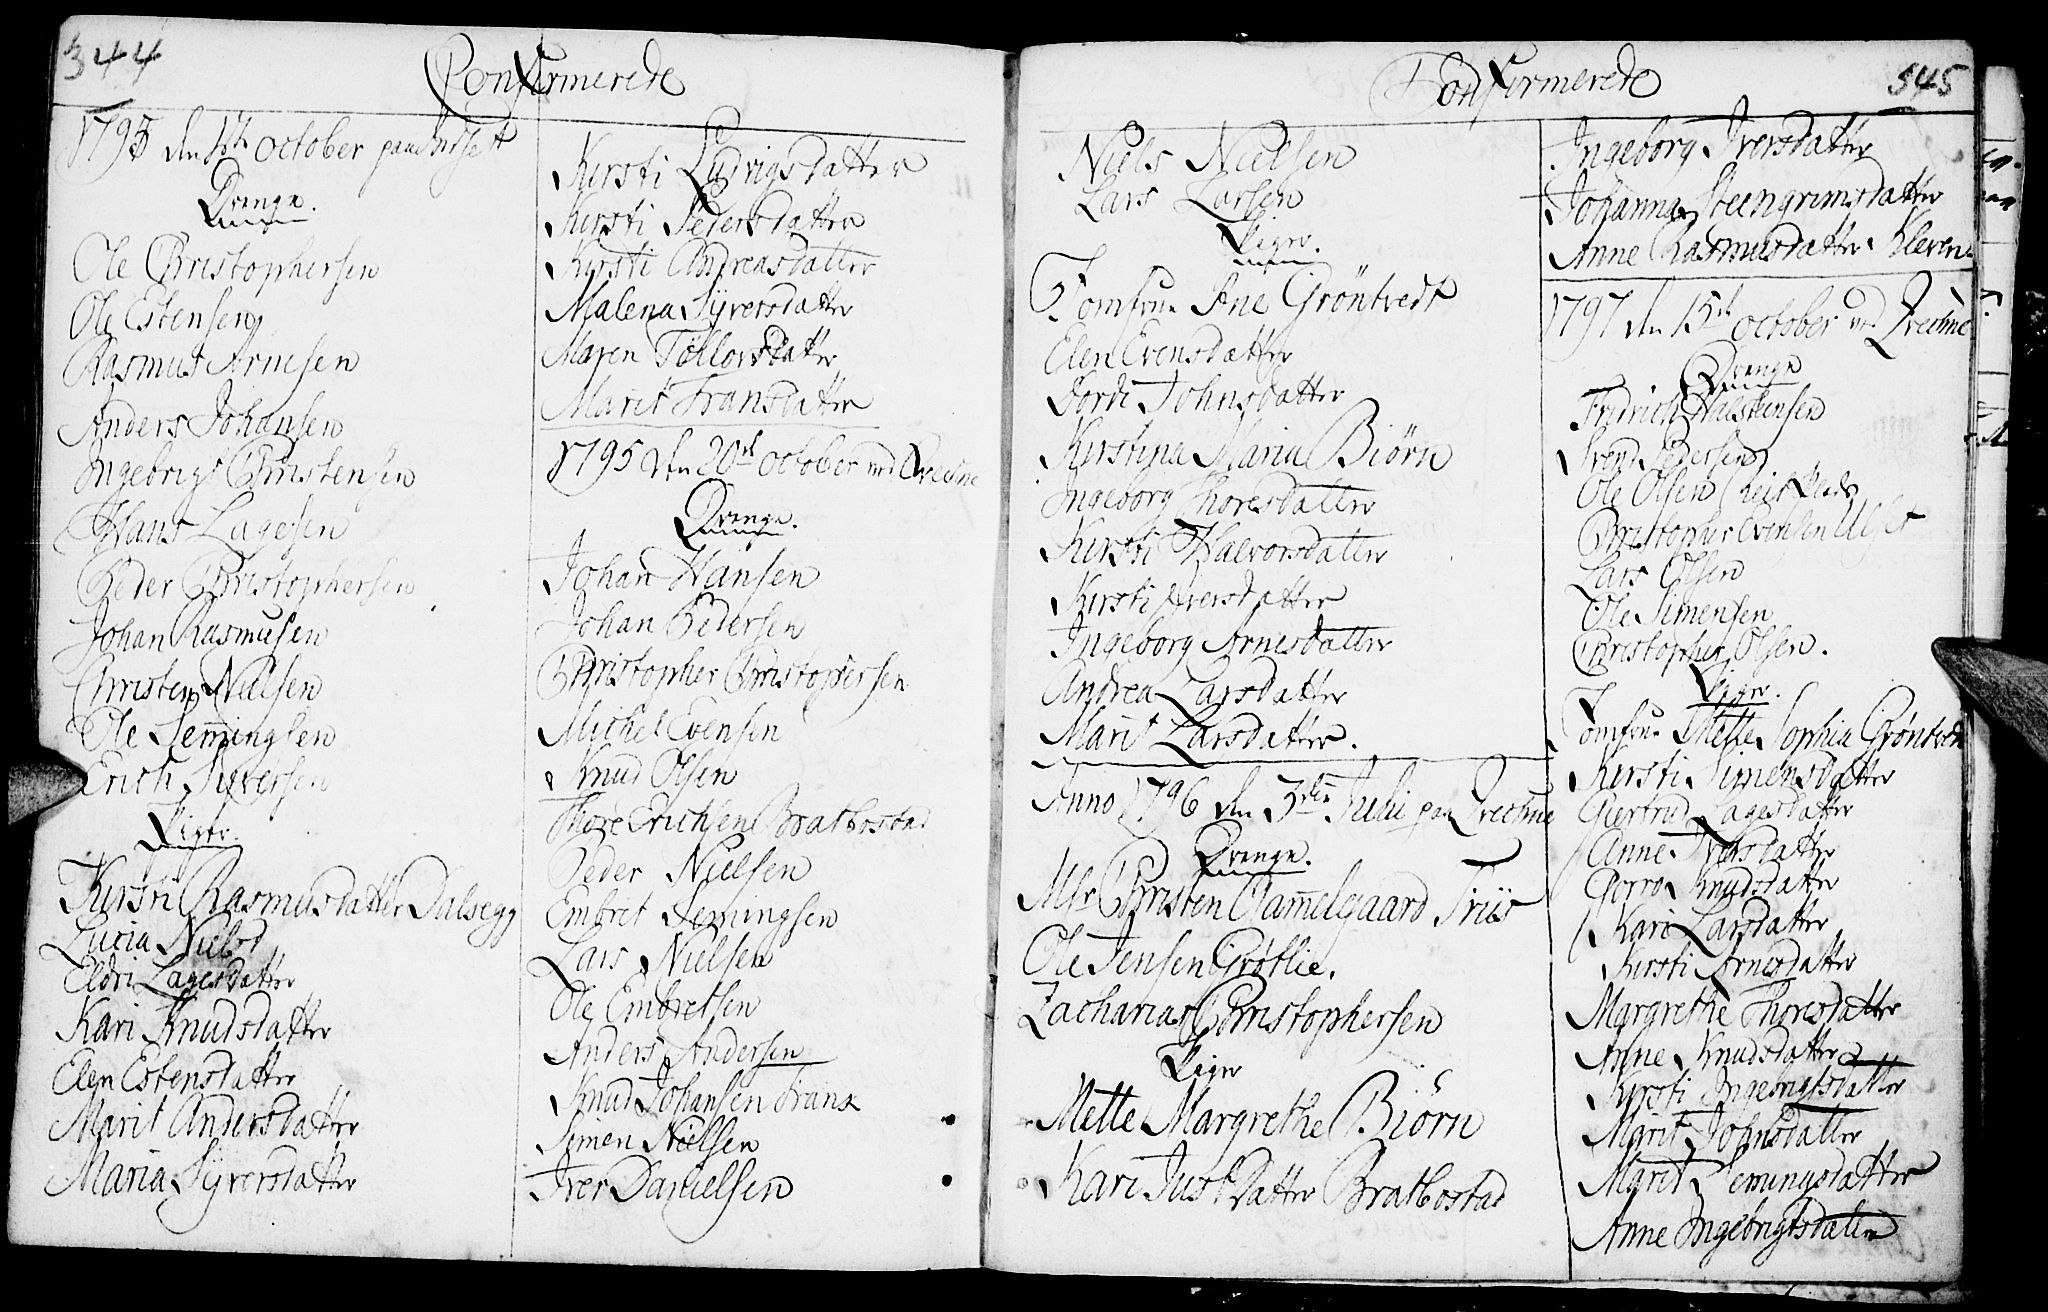 344
Confirmerede
1795 den October paa
Drenge.
Ole Christophersen
Ole Estensen
Rasmus Arnesen
Anders Johansen
Ingebrigt Christensen
Hans Lagesen
Peder Christophersen
Johan Rasmusen
Christen Nielsen
Ole Semingsen
Erich Siversen
Piger.
Kirsti Rasmusdatter Dalsegg
Lucia Nielsd
Eldri Lagesdatter
Kari Knudsdatter
Elen Estensdatter
Marit Andersdatter
Maria Syversdatter
Kirsti Ludvigsdatter
Kirsti Pedersdatter
Kirsti Andreasdatter
Malena Syversdatter
Maren Tollovsdatter
Marit Fransdatter
1795 den 20de October ved Qvechne
Drenge.
Johan Hansen
Johan Pedersen
Christopher Christophersen
Michel Evensen
Knud Olsen
Thore Erichsen Bratbostad
Peder Nielsen
Embret Semingsen
Lars Nielsen
Ole Embretsen
Anders Andersen
Knud Johansen Frans
Simen Nielsen
Iver Danielsen
Confirmerede
345
Niels Nielsen
Lars Larsen
Piger.
Jomfrue Ane Gröntvedt
Elen Evensdatter
Jordi Johnsdatter
Kirstina Maria Biörn
Ingeborg Thoresdatter
Kirsti Halvorsdatter
Kirsti Iversdatter
Ingeborg Arnesdatter
Andrea Larsdatter
Marit Larsdatter.
Anno 1796 den 3die Julii paa Qvechne
Drenge.
Msr Christen Gammelgaard Friis
Ole Jensen Grötlie.
Zacharias Christophersen
Piger
Mette Margrethe Biörn
Kari Justdatter Bratbostad
Ingeborg Iversdatter
Johanna Steengrimsdatter
Anne Rasmusdatter Kleven
1797 den 15de October ved Qvechne
Drenge
Fridrich Halsteensen
Svend Pedersen
Ole Olsen
Christopher Evensen Ulset
Lars Olsen
Ole Simensen
Christopher Olsen.
Piger.
Jomfrue Mette Sophia Gröntvedt
Kirsti Simensdatter
Giertrud Lagesdatter
Anne Iversdatter
Gorro Knudsdatter
Kari Larsdatter
Kirsti Arnesdatter
Margrethe Thoresdatter
Anne Knudsdatter
Kirsti Ingebrigtsdatter
Marit Johnsdatter
Marit Semingsdatter
Anne Ingebrigtsdatter